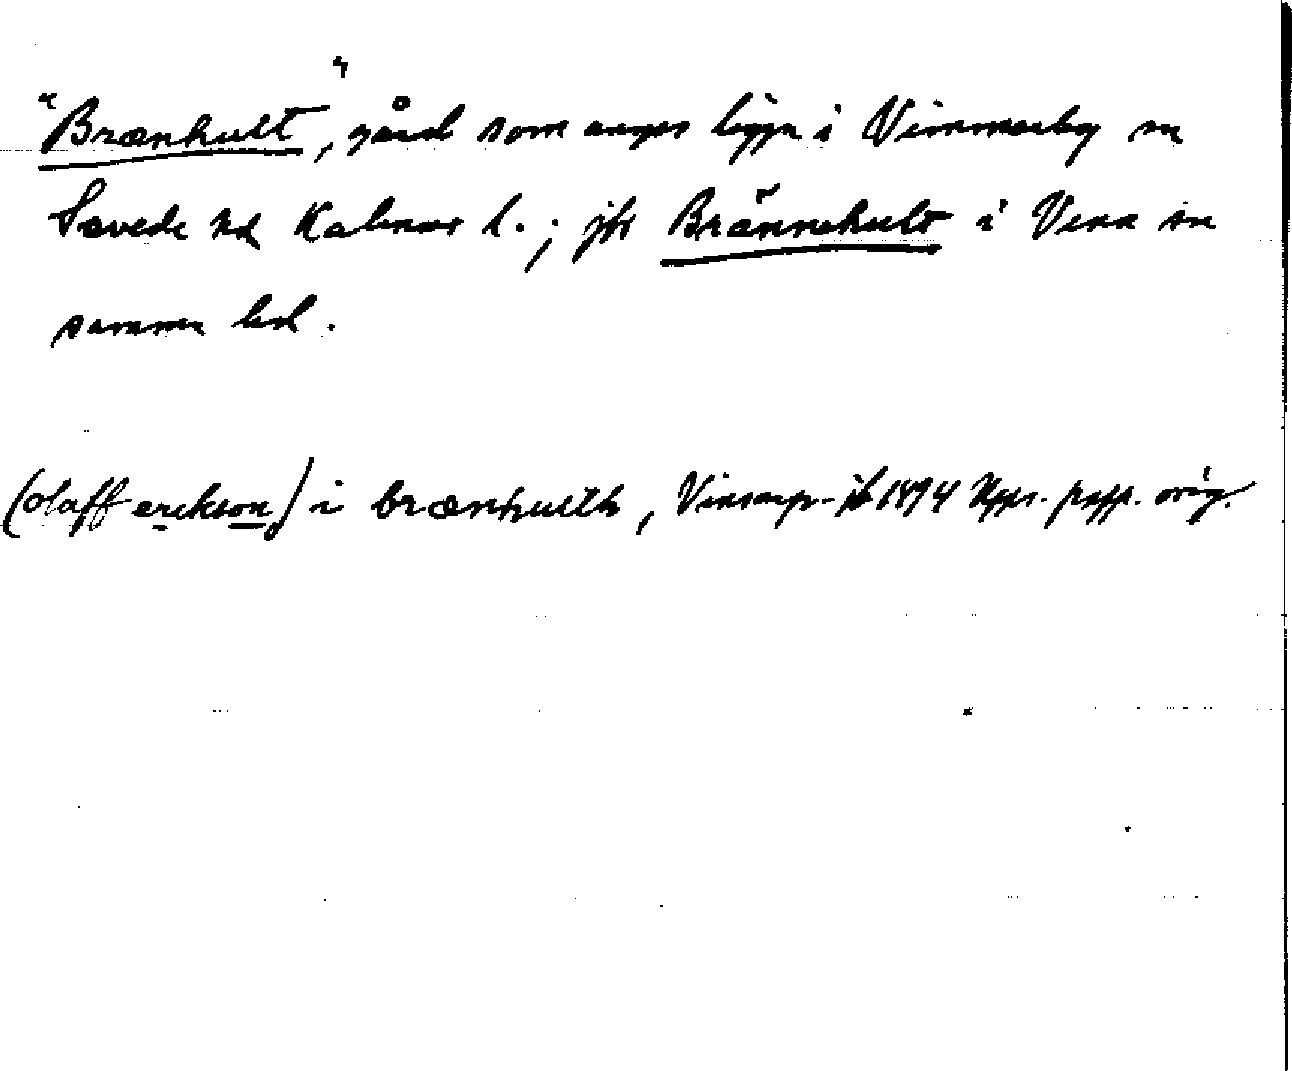 "Brænhult", gård som anges ligga i Vimmerby sn
Sevede hd Kalmar l.; jfr Brännehult i Vena sn
samma hd.
(olaff erekson) i brænhulth, Vinsarp- jb 1494 Upps. papp. orig.